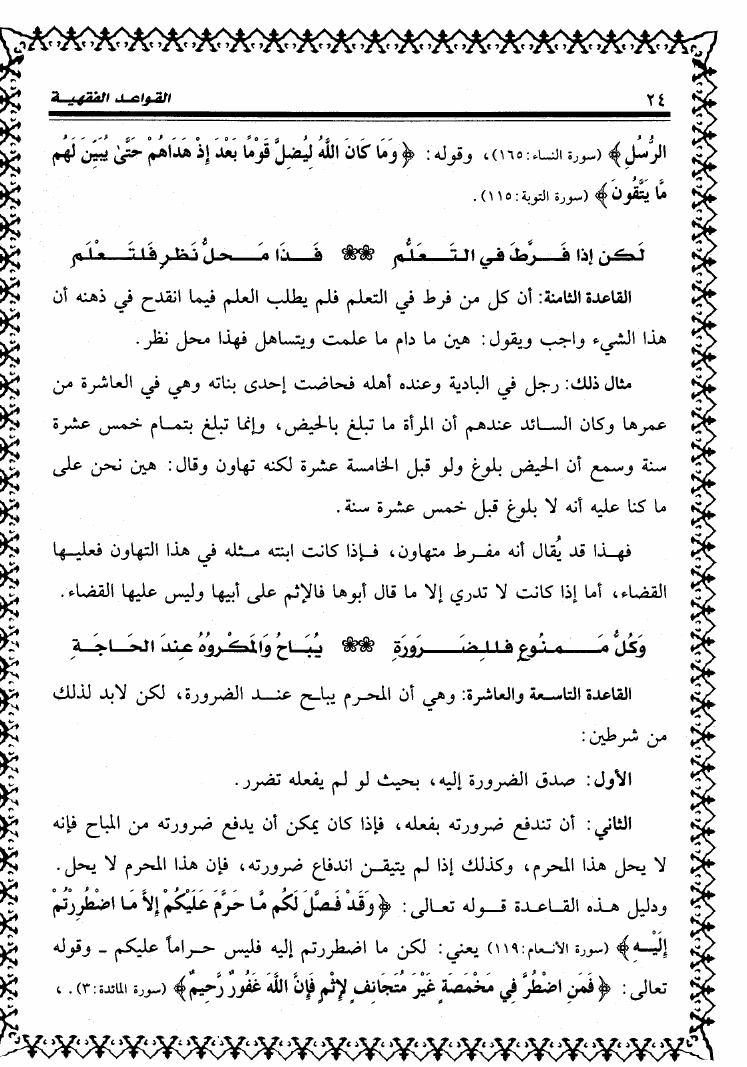 ٢٤ القواعد الفقهية
الرُّسُلِ﴾ (سورة النساء:١٦٥)، وقوله: ﴿وَمَا كَانَ اللَّهُ لِيُضِلَّ قَوْمًا بَعْدَ إِذْ هَدَاهُمْ حَتَّىٰ يُبَيِّنَ لَهُم
مَّا يَتَّقُونَ﴾ (سورة التوبة:١١٥).
لَكن إذا فَرَّطَ في التَعَلُّم ❀❀ فَذَا مَحلُّ نَظرٍ فلتَعْلَم
القاعدة الثامنة: أن كل من فرط في التعلم فلم يطلب العلم فيما انقدح في ذهنه أن
هذا الشيء واجب ويقول: هين ما دام ما علمت ويتساهل فهذا محل نظر.
مثال ذلك: رجل في البادية وعنده أهله فحاضت إحدى بناته وهي في العاشرة من
عمرها وكان السائد عندهم أن المرأة ما تبلغ بالحيض، وإنما تبلغ بتمام خمس عشرة
سنة وسمع أن الحيض بلوغ ولو قبل الخامسة عشرة لكنه تهاون وقال: هين نحن على
ما كنا عليه أنه لا بلوغ قبل خمس عشرة سنة.
فهذا قد يُقال أنه مفرط متهاون، فإذا كانت ابنته مثله في هذا التهاون فعليها
القضاء، أما إذا كانت لا تدري إلا ما قال أبوها فالإثم على أبيها وليس عليها القضاء.
وَكُلُّ مَمنُوعٍ فللضَرَورَةِ ❀❀ يُبَاحُ وَالمكْروُهُ عِندَ الحَاجَةِ
القاعدة التاسعة والعاشرة: وهي أن المحرم يباح عند الضرورة، لكن لابد لذلك
من شرطين:
الأول: صدق الضرورة إليه، بحيث لو لم يفعله تضرر.
الثاني: أن تندفع ضرورته بفعله، فإذا كان يمكن أن يدفع ضرورته من المباح فإنه
لا يحل هذا المحرم، وكذلك إذا لم يتيقن اندفاع ضرورته، فإن هذا المحرم لا يحل.
ودليل هذه القاعدة قوله تعالى: ﴿وَقَدْ فَصَّلَ لَكُم مَّا حَرَّمَ عَلَيْكُمْ إِلاَّ مَا اضْطُرِرْتُمْ
إِلَيْهِ﴾ (سورة الأنعام:١١٩) يعني: لكن ما اضطررتم إليه فليس حراماً عليكم ـ وقوله
تعالى: ﴿فَمَنِ اضْطُرَّ فِي مَخْمَصَةٍ غَيْرَ مُتَجَانِفٍ لإِثْمٍ فَإِنَّ اللَّهَ غَفُورٌ رَّحِيمٌ﴾ (سورة المائدة:٣).،